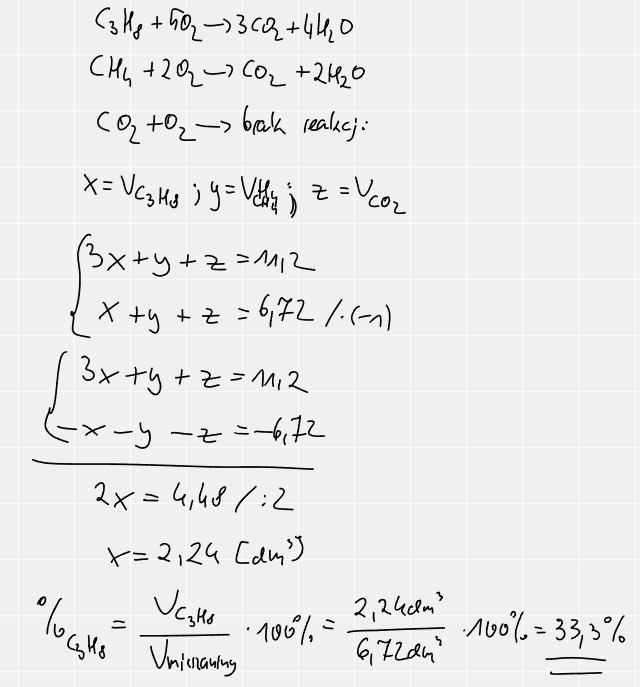 C₃H₈ + 5O₂ → 3CO₂ + 4H₂O
CH₄ + 2O₂ → CO₂ + 2H₂O
CO₂ + O₂ → brak reakcji
x = V_C₃H₈ ; y = V_CH₄ ; z = V_CO₂
3x + y + z = 11,2
x + y + z = 6,72 /·(-1)
3x + y + z = 11,2
-x - y - z = -6,72
2x = 4,48 /:2
x = 2,24 [dm³]
%C₃H₈ = V_C₃H₈ / V_mieszaniny · 100% = 2,24dm³ / 6,72dm³ · 100% = 33,3%